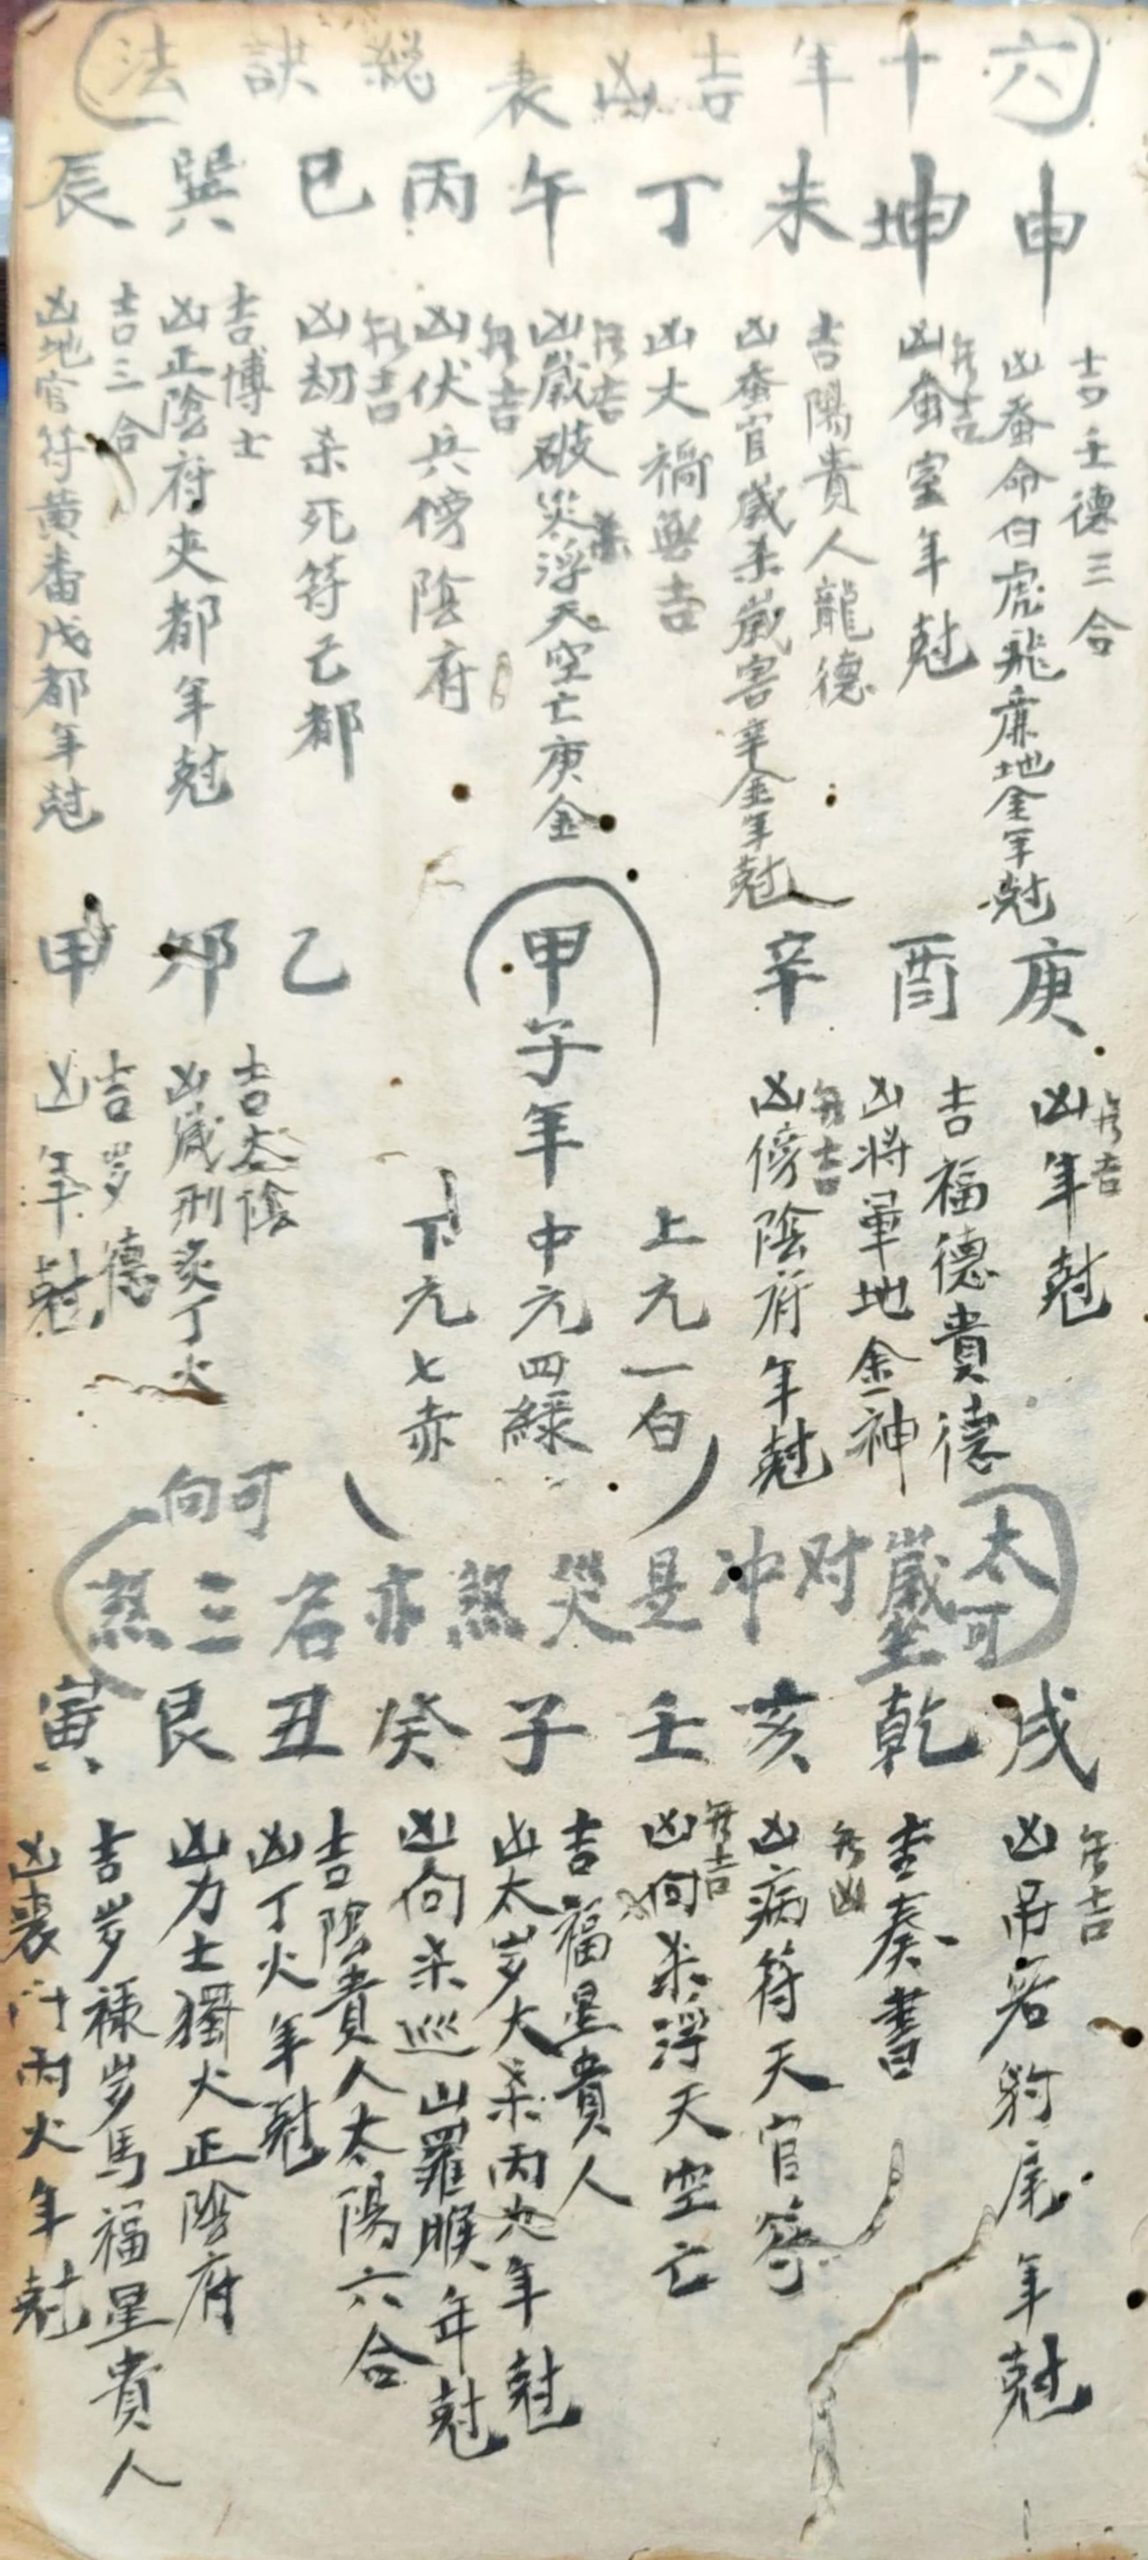 六十年吉凶表總訣法
申
吉壬德三合
凶蚕命白虎飛廉地金年尅
坤
無吉
凶蚕室年尅
未
吉陽貴人龍德
凶蚕官歲杀歲害辛金年尅
丁
凶大禍無吉
午
無吉
凶歲破災杀浮天空亡庚金
丙
無吉
凶伏兵傍陰府
巳
無吉
凶劫杀死符己都
巽
吉博士
凶正陰府夾都年尅
辰
吉三合
凶地官符黃番戊都年尅
庚
無吉
凶年尅
酉
吉福德貴德
凶將軍地金神
辛
無吉
凶傍陰府年尅
甲子年中元四綠
上元一白
下元七赤
乙
卯
吉太陰
凶歲刑炙丁火
甲
吉岁德
凶年尅
太歲对冲是災煞亦名三煞
可坐
可向
戌
無吉
凶吊客豹尾年尅
乾
吉奏書
無凶
亥
凶病符天官符
壬
無吉
凶向杀浮天空亡
子
吉福星貴人
凶太岁大杀丙火年尅
癸
凶向杀巡山羅睺年尅
丑
吉陰貴人太陽六合
凶丁火年尅
艮
凶力士獨火正陰府
寅
吉岁祿岁馬福星貴人
凶喪门丙火年尅